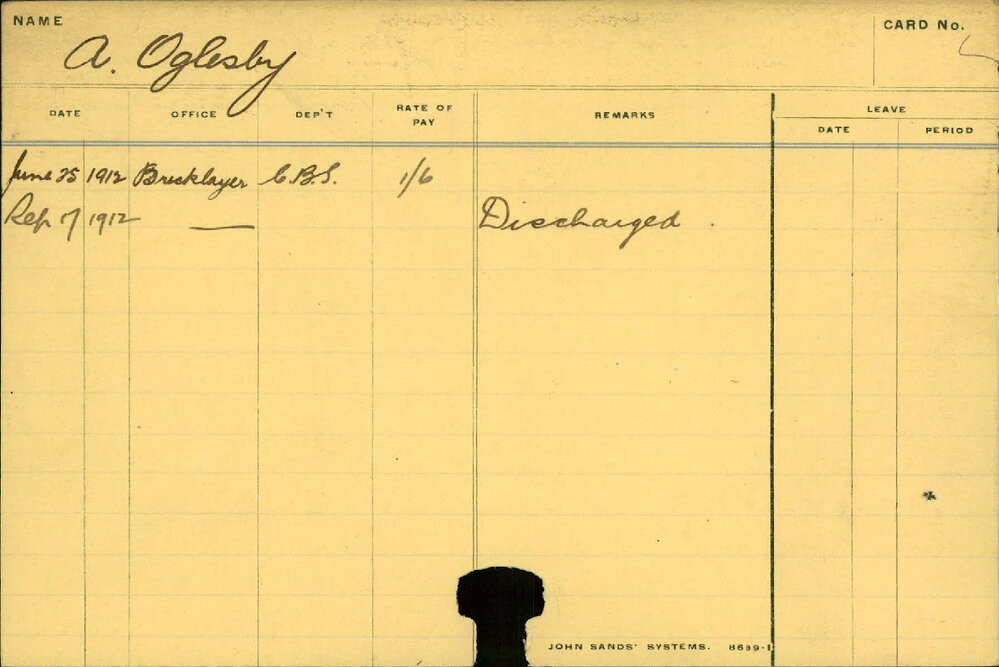 NAME
A. Oglesby
CARD No.
DATE OFFICE DEP'T RATE OF PAY REMARKS LEAVE
DATE PERIOD
June 25 1912 Bricklayer C.B.S. 1/6
Sep 17 1912 — Discharged.
JOHN SANDS' SYSTEMS. 8689-1